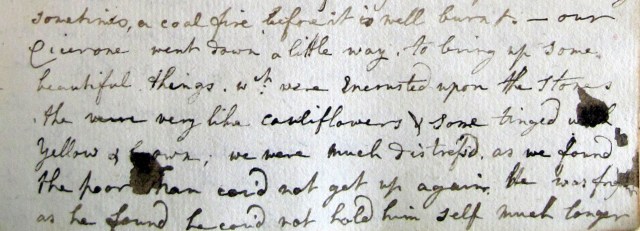 sometimes, a coal fire, before it is well burnt. – our
Cicerone went down a little way, to bring up some
beautiful things, wch. were Encrusted upon the Stones
the were very like cauliflowers & some tinged with
Yellow & brown, we were much distress'd, as we found
the poor Man cou'd not get up again. He was
as he found he cou'd not hold him self much longer